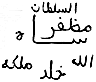 السلطان
مظفر شاه
خلد الله ملكه